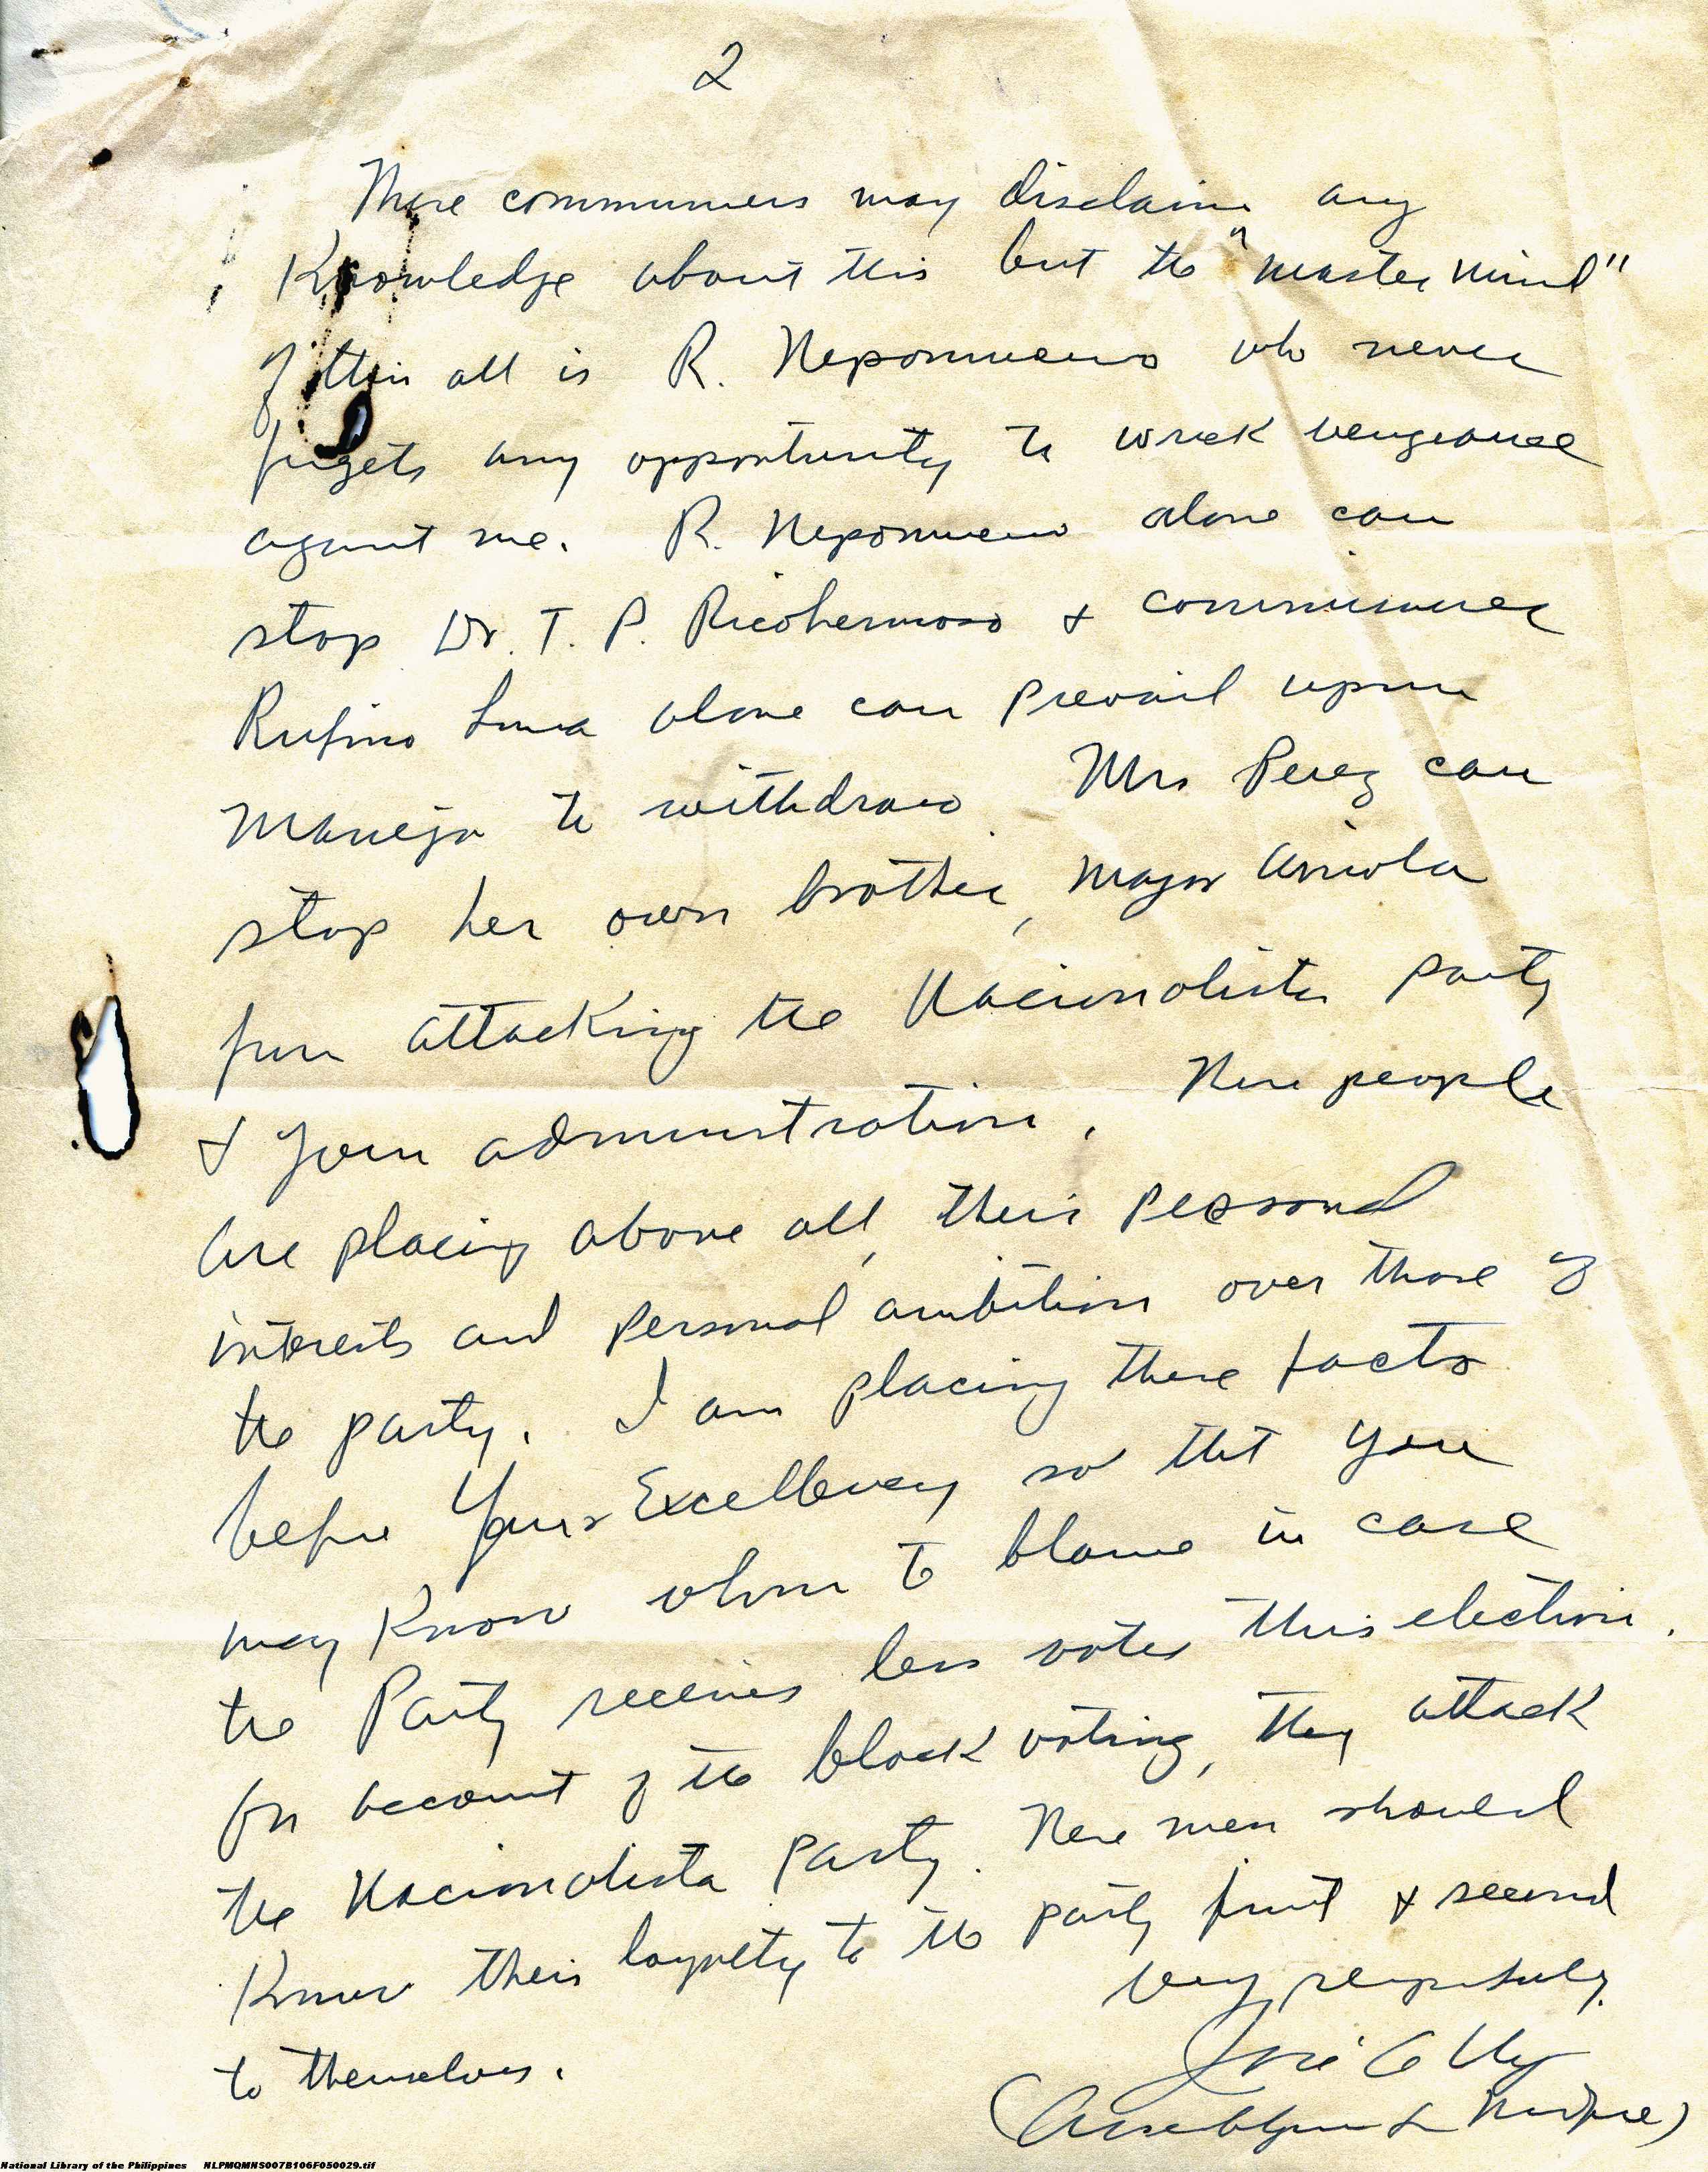 2
These commissioners may disclaim any
Knowledge about this but the "master mind"
of this all is R. Nepomuceno who never
forgets any opportunity to wreak vengeance
against me. R. Nepomuceno alone can
stop Dr. T. P. Ricohermoso & commissioner
Rufino Luna alone can prevail upon
Manejo to withdraw. Mrs Perez can
stop her own brother, Major Arriola
from attacking the Nacionalista party
& your administration. These people
are placing above all, their personal
interests and personal ambition over those of
the party. I am placing these facts
before Your Excellency so that you
may Know whom to blame in case
the Party receives less votes this election.
On account of the block voting, they attack
the Nacionalista party. These men should
Know their loyalty to the party first & second
to themselves.
Very respectfully,
Jose A Uy
(Assemblyman
National Library of the Philippines NLPMQMNS007B106F050029.tif